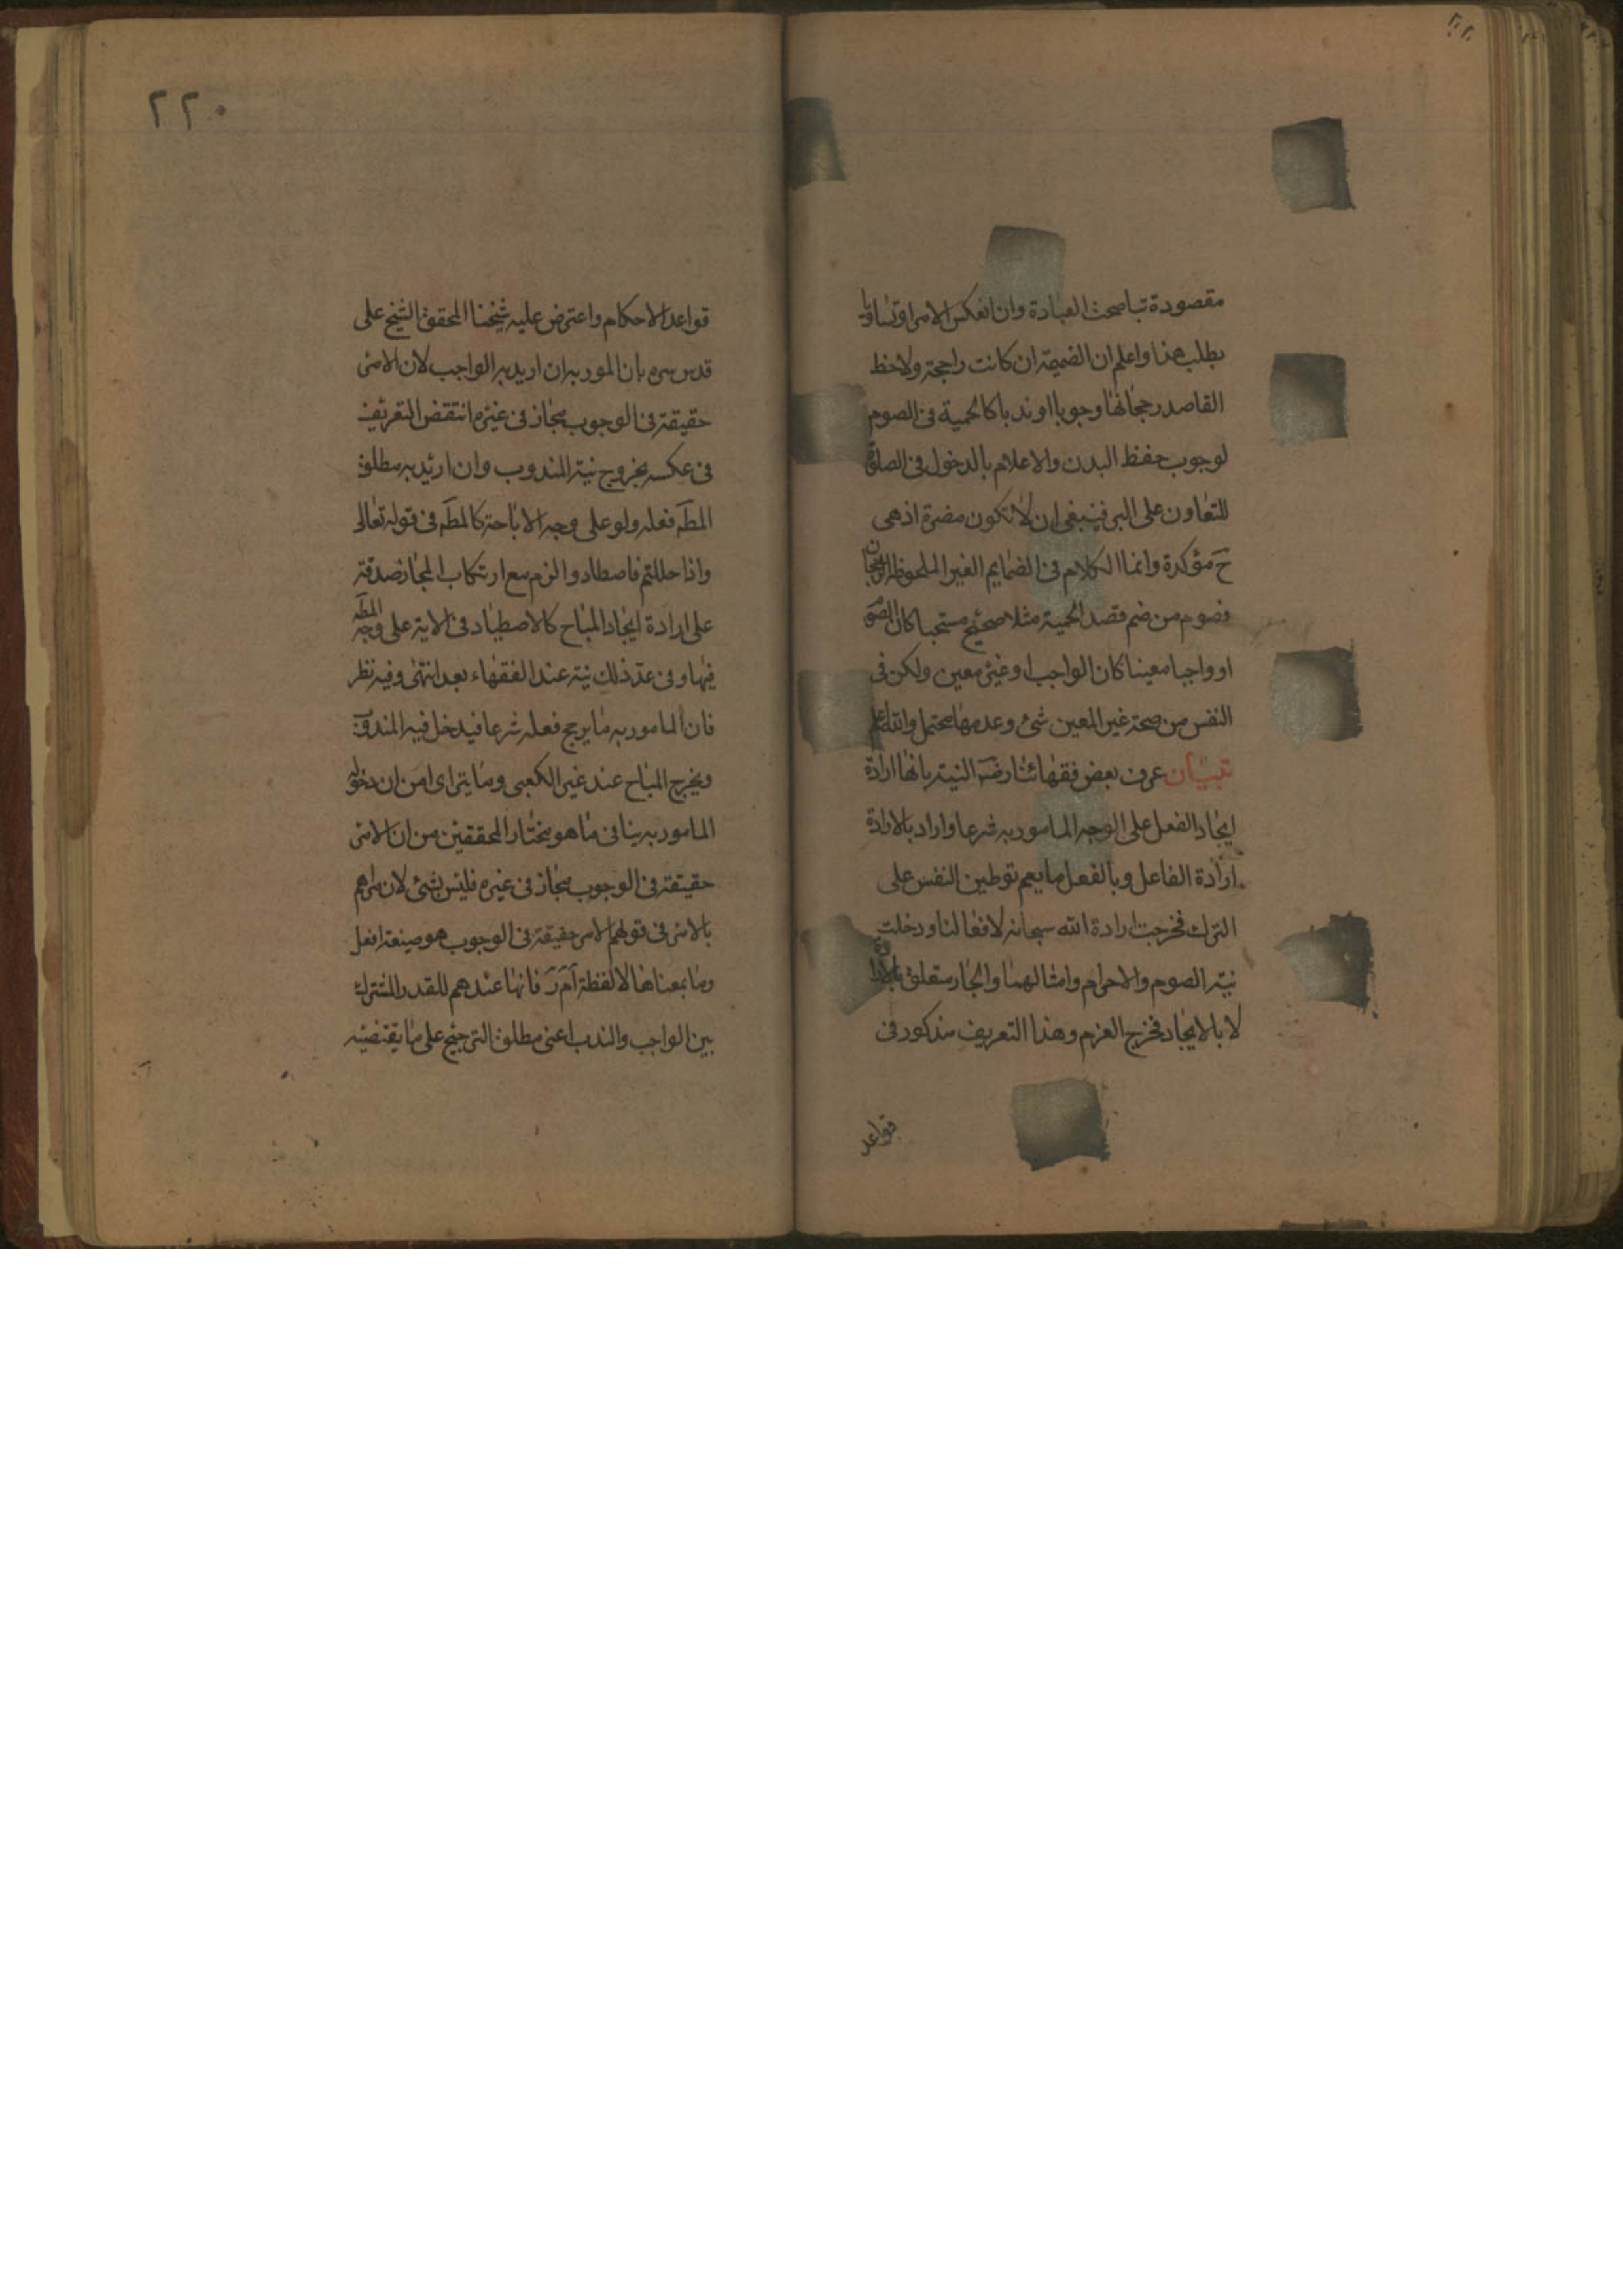 مقصودة تبعا صحت العبادة وان انعكس الامر او تساويا
بطلت هذا واعلم ان الضميمة ان كانت راجحة ولاحظ
القاصد رجحانها وجوبا او ندبا كالحمية فى الصوم
لوجوب حفظ البدن والاعلام بالدخول فى الصلوة
للتعاون على البر فينبغى ان لا تكون مضرة اذ هى
ح مؤكدة وانما الكلام فى الضمايم الغير الملحوظة الرجحان
فصوم من ضم قصد الحمية مثلا صحيح مستحبا كان الصوم
او واجبا معينا كان الواجب او غير معين ولكن فى
النفس من صحة غير المعين شئ وعدمها محتمل والله اعلم
تبيان عرف بعض فقهائنا رضه النية بانها ارادة
ايجاد الفعل على الوجه المامور به شرعا واراد بالارادة
ارادة الفاعل وبالفعل ما يعم توطين النفس على
الترك فخرجت ارادة الله سبحانه لافعالنا ودخلت
نية الصوم والاحرام وامثالهما والجار متعلق بالارادة
لا بالايجاد فخرج العزم وهذا التعريف مذكور فى
قواعد
٢٢٠
قواعد الاحكام واعترض عليه شيخنا المحقق الشيخ على
قدس سره بان المور به ان اريد به الواجب لان الامر
حقيقة فى الوجوب مجاز فى غيره انتقض التعريف
فى عكسه بخروج نية المندوب وان اريد به مطلق
المطه فعله ولو على وجه الاباحة كالمطه فى قوله تعالى
واذا حللتم فاصطادوا لزم مع ارتكاب المجاز صدقة
على ارادة ايجاد المباح كالاصطياد فى الاية على وجه المطه
فيها وفى عد ذلك نية عند الفقهاء بعد انتهى وفيه نظر
فان المامور به ما يرجح فعله شرعا فيدخل فيه المندوب
ويخرج المباح عند غير الكعبى وما يترااى من ان دخوله
المامور به ينافى ما هو مختار المحققين من ان الامر
حقيقة فى الوجوب مجاز فى غيره فليس بشئ لان مرادهم
بالامر فى قولهم الامر حقيقة فى الوجوب هو صيغة افعل
وما بمعناها لا لفظة اَمَرَ فانها عندهم للقدر المشترك
بين الواجب والندب اعنى مطلق الترجيح على ما يقتضيه